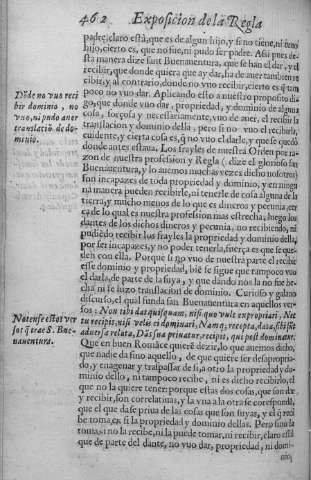 462 Exposicion de la Regla
padre, claro està, que es de algun hijo, y si no tiene, ni tuuo
hijo, cierto es, que no fue, ni pudo ser padre. Assi pues de-
sta manera dize san Buenauentura, que se han el dar, y el
recibir, que donde quiera que ay dar, ha de auer tambien re
cibir, y al contrario, donde no vuo recibir, cierto es q̃ tam
poco no vuo dar. Aplicando esto a nuestro proposito di-
go, que donde vuo dar, propriedad, y dominio de alguna
cosa, forçosa y necessariamente, vuo de auer, el recibir la
translacion y dominio della, pero si no vuo el recibirla,
euidente, y cierta cosa es, q̃ no vuo el darle, y que se quedò
donde antes estaua. Los frayles de nuestra Orden por ra-
zon de nuestra profession y Regla (dize el glorioso san
Buenauentura, y lo auemos muchas vezes dicho nosotros)
son incapaces de toda propriedad y dominio, y en ningu
na manera pueden recibirle, ni tenerle de cosa alguna de la
tierra, y mucho menos de lo que es dineros y pecunia, cer
ca de lo qual es nuestra profession mas estrecha, luego los
dantes de los dichos dineros y pecunia, no recibiendo, ni
pudiẽdo recibir los frayles la propriedad y dominio della,
por ser incapaces, y no poder tenerla, fuerça es que se que-
den con ella. Porque si no vuo de nuestra parte el recibir
esse dominio y propriedad, biẽ se sigue que tampoco vuo
el darla, de parte de la suya, y que dando nos la no fue he-
cha ni se hizo translacion de dominio. Curioso y galano
discurso, el qual funda san Buenauentura en aquellos ver
sos: Non tibi dat quisquam, nisi quod vult expropriari, Ne
tu recipis, nisi velis ei dominari, Namq; recepta, data,
aduersa relata, Dãs sua priuatur, recipis, qui pòst dominatur.
Que en buen Romãce quierẽ dezir, lo que auemos dicho,
que nadie da sino aquello, de que quiere ser desaproprìa-
do, y enagenar y traspassar de si, a otro la propriedad y do-
minio dello, ni tampoco recibe, ni es dicho recibirlo, el
que no la quiere tener: porque estas dos cosas, que son dar
y recibir, son correlatiuas, y la vna a la otra se correspondẽ,
que el que da se priua de las cosas que son suyas, y el q̃ reci
be toma en si la propriedad y dominio dellas. Pero sino la
toma, o no la recibe, ni la puede tomar, ni recibir, claro està
que de parte del dante, no vuo dar, propriedad, ni domi-
nio,
Dõde no vuo reci
bir dominio, no
vuo, ni pudo auer
translatiõ de do-
minio.
Notense estos ver
sos q̃ trae S. Bue-
nauentura.